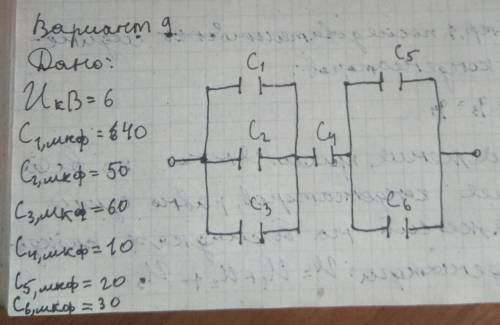 Вариант 9
Дано:
UкВ = 6
C1,мкф = 640
C2,мкф = 50
C3,мкф = 60
C4,мкф = 10
C5,мкф = 20
C6,мкф = 30
C1
C2
C3
C4
C5
C6